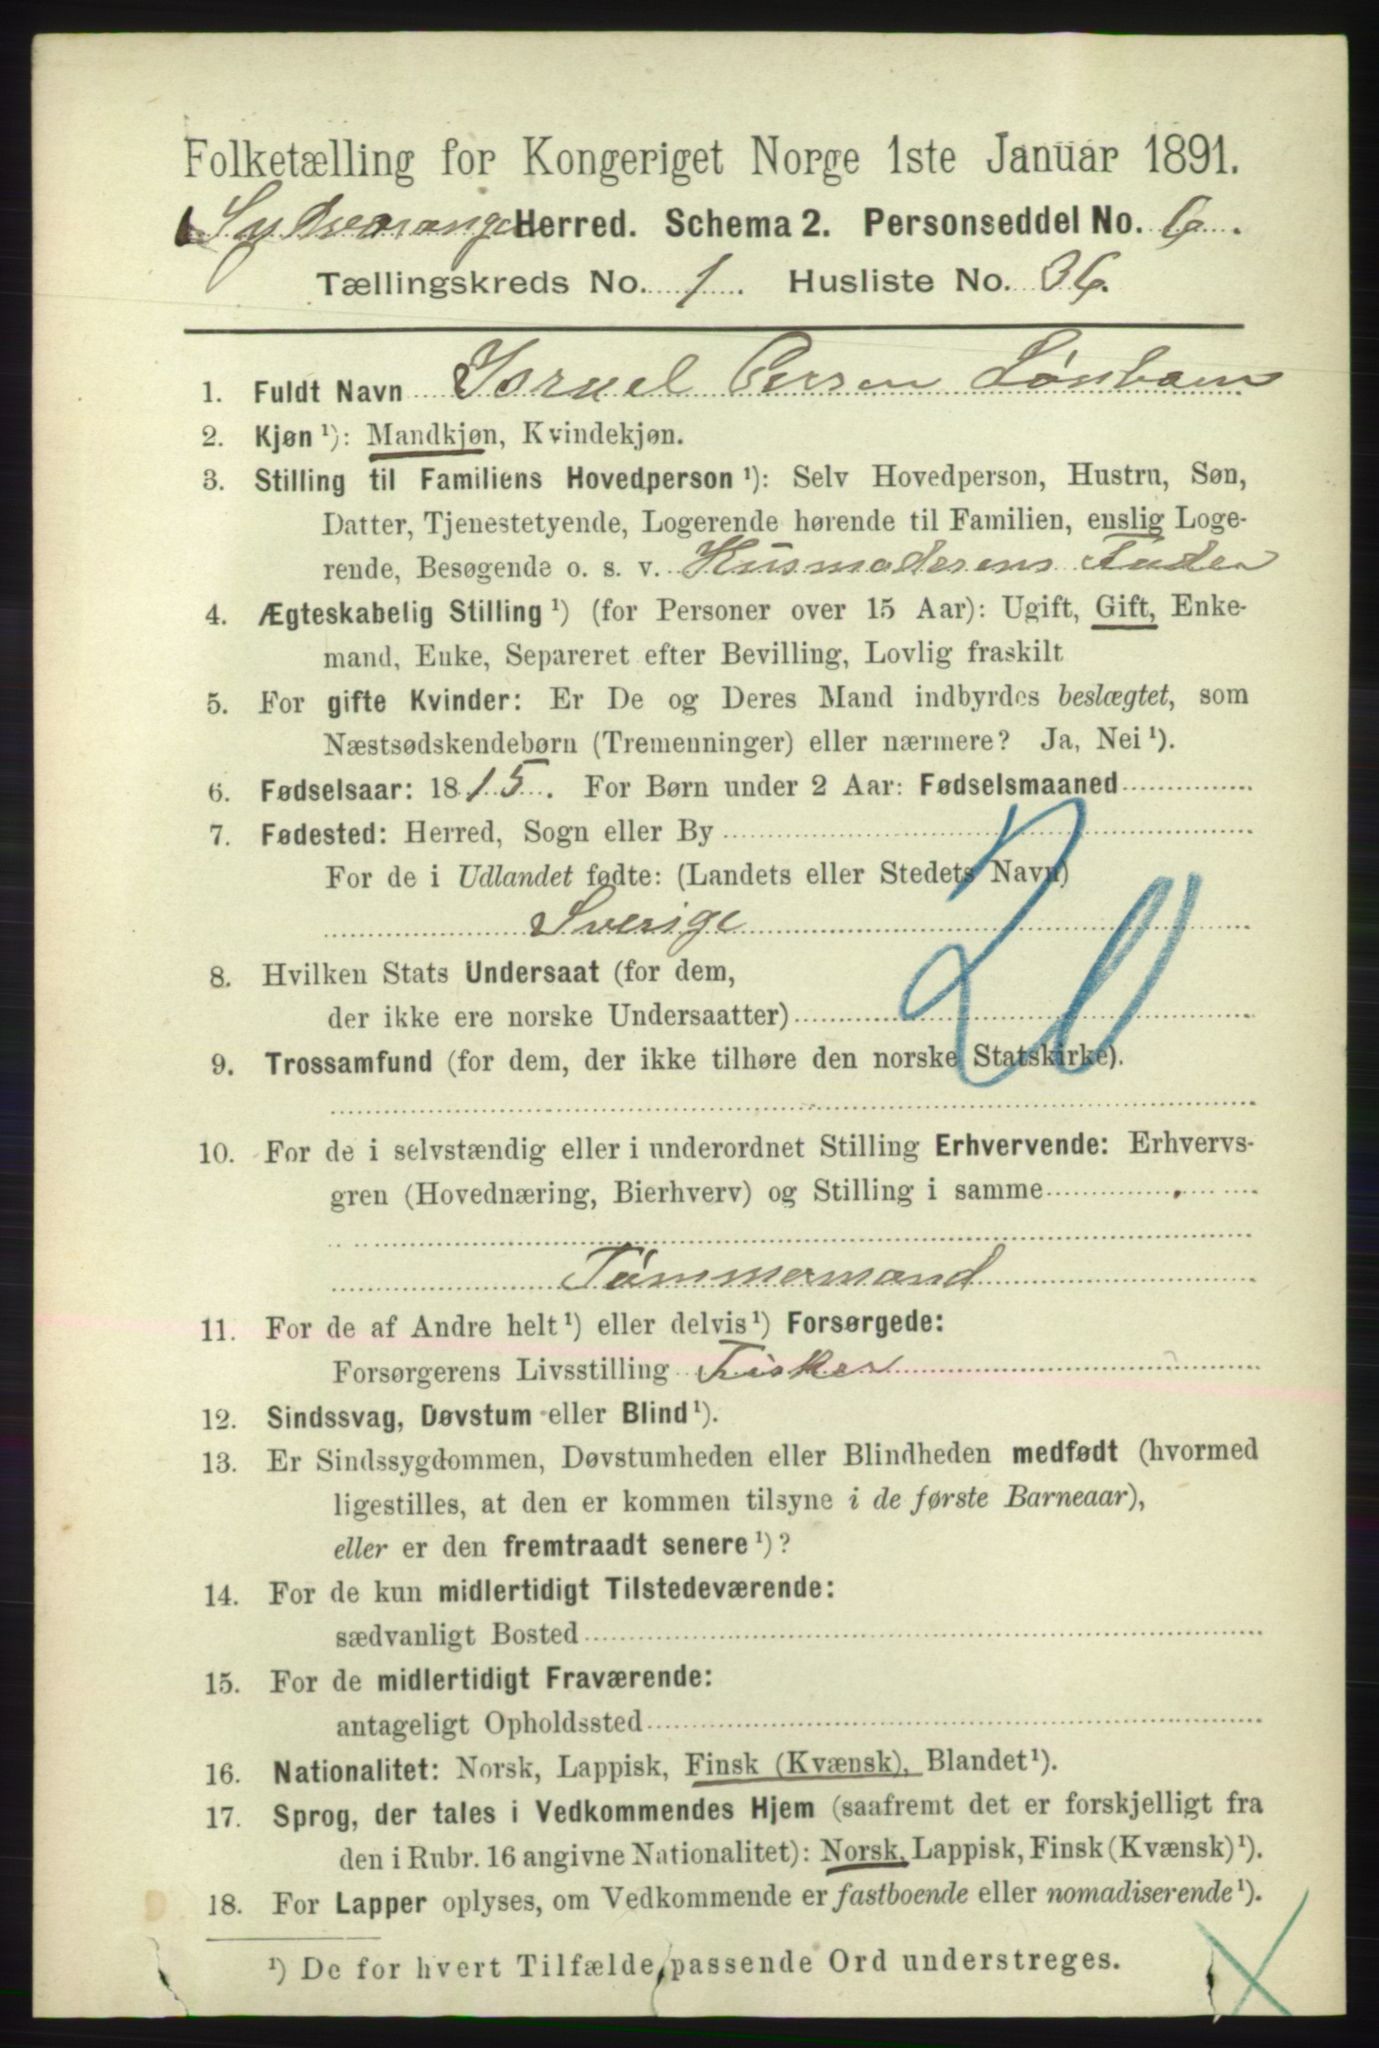 Folketælling for Kongeriget Norge 1ste Januar 1891.
Sydvaranger Herred. Schema 2. Personseddel No. 6.
Tællingskreds No. 1. Husliste No. 36.
1. Fuldt Navn Israel Persen
2. Kjøn ¹): Mandkjøn, Kvindekjøn.
3. Stilling til Familiens Hovedperson ¹): Selv Hovedperson, Hustru, Søn,
Datter, Tjenestetyende, Logerende hørende til Familien, enslig Loge-
rende, Besøgende o. s. v. Husmoderens Fader
4. Ægteskabelig Stilling ¹) (for Personer over 15 Aar): Ugift, Gift, Enke-
mand, Enke, Separeret efter Bevilling, Lovlig fraskilt
5. For gifte Kvinder: Er De og Deres Mand indbyrdes beslægtet, som
Næstsødskendebørn (Tremenninger) eller nærmere? Ja, Nei ¹).
6. Fødselsaar: 1815. For Børn under 2 Aar: Fødselsmaaned
7. Fødested: Herred, Sogn eller By
For de i Udlandet fødte: (Landets eller Stedets Navn)
Sverige
8. Hvilken Stats Undersaat (for dem,
der ikke ere norske Undersaatter)
9. Trossamfund (for dem, der ikke tilhøre den norske Statskirke).
10. For de i selvstændig eller i underordnet Stilling Erhvervende: Erhvervs-
gren (Hovednæring, Bierhverv) og Stilling i samme
Tømmermand
11. For de af Andre helt ¹) eller delvis ¹) Forsørgede:
Forsørgerens Livsstilling Fisker
12. Sindssvag, Døvstum eller Blind ¹).
13. Er Sindssygdommen, Døvstumheden eller Blindheden medfødt (hvormed
ligestilles, at den er kommen tilsyne i de første Barneaar),
eller er den fremtraadt senere ¹)?
14. For de kun midlertidigt Tilstedeværende:
sædvanligt Bosted
15. For de midlertidigt Fraværende:
antageligt Opholdssted
16. Nationalitet: Norsk, Lappisk, Finsk (Kvænsk), Blandet ¹).
17. Sprog, der tales i Vedkommendes Hjem (saafremt det er forskjelligt fra
den i Rubr. 16 angivne Nationalitet): Norsk, Lappisk, Finsk (Kvænsk) ¹).
18. For Lapper oplyses, om Vedkommende er fastboende eller nomadiserende ¹).
¹) De for hvert Tilfælde passende Ord understreges.